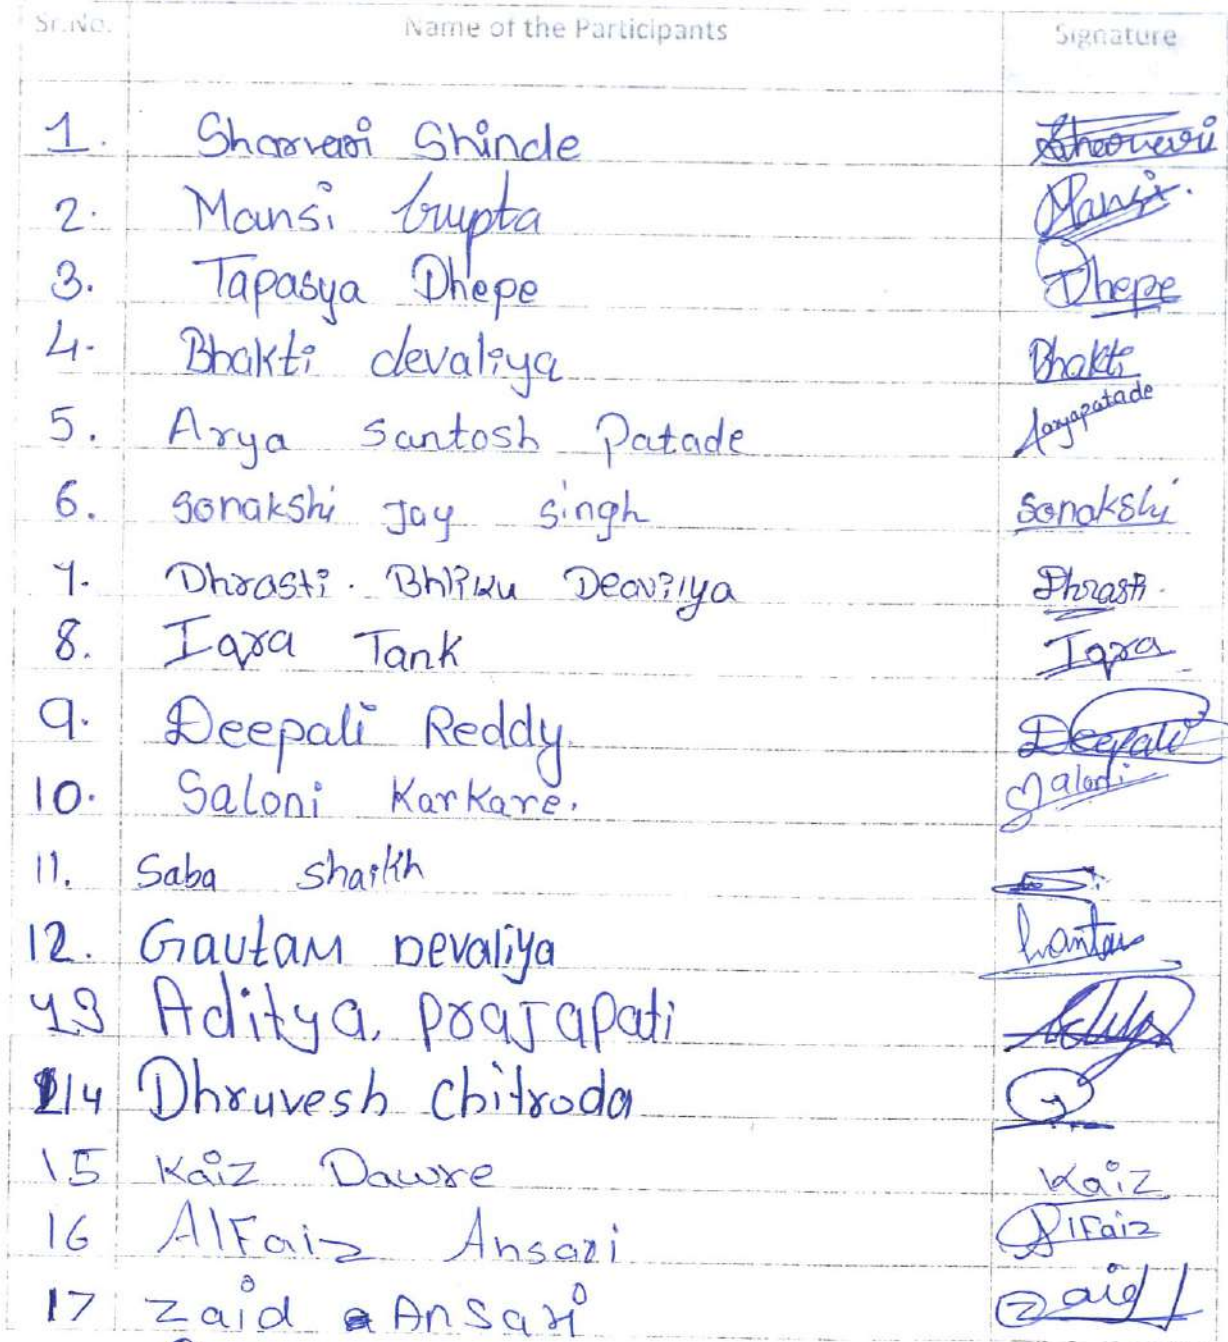 Sr.No. Name of the Participants Signature
1. Sharvari Shinde Sharvari
2. Mansi Gupta Mansi.
3. Tapasya Dhepe Dhepe
4. Bhakti devaliya Bhakti
5. Arya Santosh Patade Aaryapatade
6. Sonakshi Jay Singh Sonakshi
7. Dhrasti. Deavilya Dhrasti.
8. Iqra Tank Iqra
9. Deepali Reddy. Deepali
10. Saloni Karkare. Saloni
11. Saba Shaikh
12. Gautam Devaliya
13 Aditya. Prajapati Aditya
14 Dhruvesh Chitroda
15 Kaiz Dawre Kaiz
16 AlFaiz Ansari AlFaiz
17 Zaid Ansari Zaid